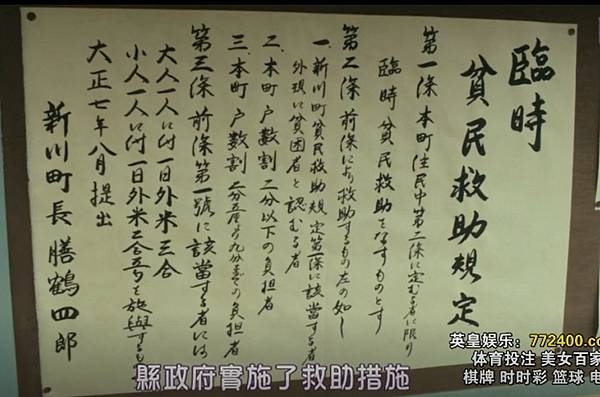 臨時
貧民救助規定
第一條 本町住民中第二條に定むる者に限り
臨時貧民救助をなすものとす
第二條 前條により救助するもの左の如し
一、新川町貧民救助規定第 條に該當する者
外現に貧困者と認むる者
二、本町戸數割二分以下の負担者
三、本町戸數割 の負担者
第三條 前條第一號に該當する者には
大人一人に付一日外米三合
小人一人に付一日外米 を施與するも
大正七年八月提出
新川町長 膳鶴四郎
縣政府實施了救助措施
英皇娱乐：772400.co
体育投注 美女百家
棋牌 时时彩 篮球 电